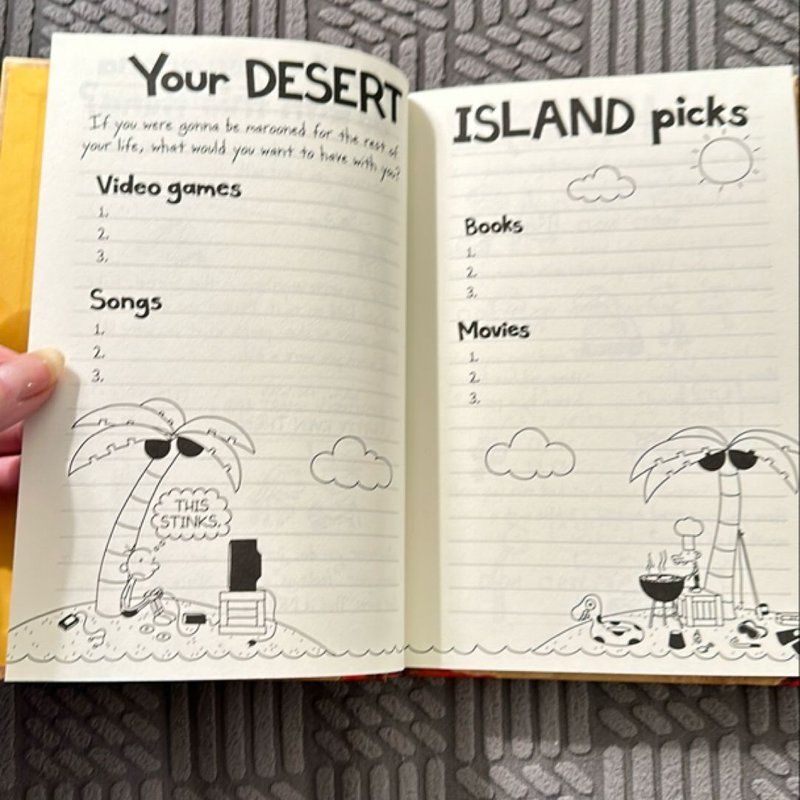 Your DESERT
If you were gonna be marooned for the rest of
your life, what would you want to have with you?
Video games
1.
2.
3.
Songs
1.
2.
3.
THIS
STINKS.
ISLAND picks
Books
1.
2.
3.
Movies
1.
2.
3.